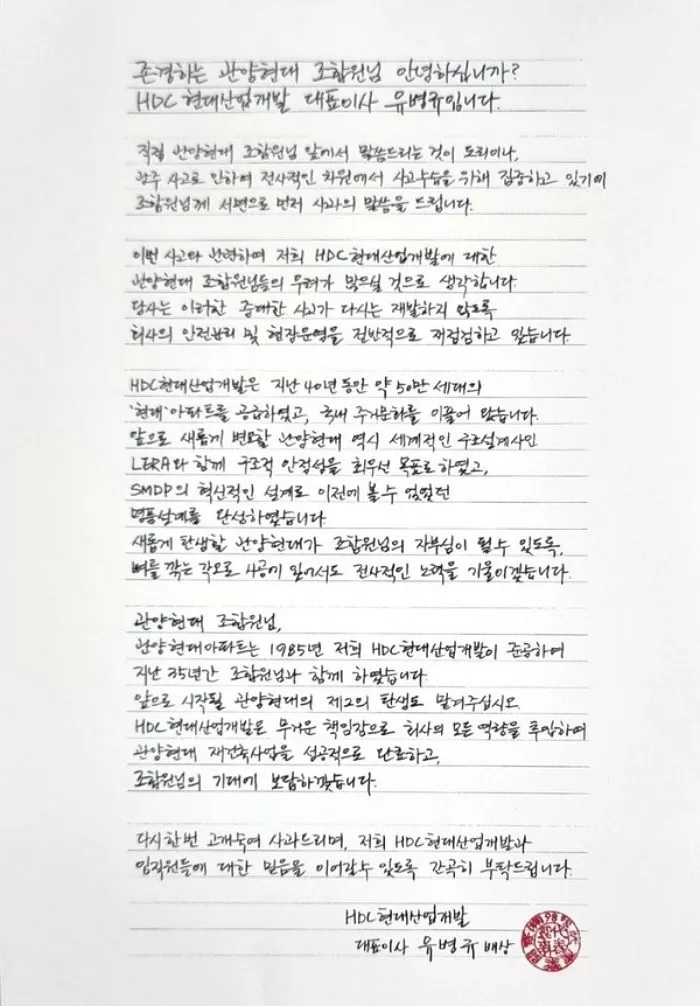 존경하는 관양현대 조합원님 안녕하십니까?
HDC 현대산업개발 대표이사 유병규입니다.
직접 관양현대 조합원님 앞에서 말씀드리는 것이 도리이나,
광주 사고로 인하여 전사적인 차원에서 사고수습을 위해 집중하고 있기에
조합원님께 서면으로 먼저 사과의 말씀을 드립니다.
이번 사고와 관련하여 저희 HDC현대산업개발에 대한
관양현대 조합원님들의 우려가 많으실 것으로 생각합니다.
당사는 이러한 중대한 사고가 다시는 재발하지 않도록
회사의 안전관리 및 현장운영을 전반적으로 재점검하고 있습니다.
HDC현대산업개발은 지난 40년 동안 약 50만 세대의
'현대'아파트를 공급하였고, 국내 주거문화를 이끌어 왔습니다.
앞으로 새롭게 변모할 관양현대 역시 세계적인 구조설계사인
LERA와 함께 구조적 안정성을 최우선 목표로 하였고,
SMDP의 혁신적인 설계로 이전에 볼 수 없었던
명품설계를 완성하였습니다.
새롭게 탄생할 관양현대가 조합원님의 자부심이 될 수 있도록,
뼈를 깎는 각오로 시공에 있어서도 전사적인 노력을 기울이겠습니다.
관양현대 조합원님,
관양현대아파트는 1985년 저희 HDC현대산업개발이 준공하여
지난 35년간 조합원님과 함께 하였습니다.
앞으로 시작될 관양현대의 제2의 탄생도 맡겨주십시오.
HDC현대산업개발은 무거운 책임감으로 회사의 모든 역량을 투입하여
관양현대 재건축사업을 성공적으로 완료하고,
조합원님의 기대에 보답하겠습니다.
다시한번 고개숙여 사과드리며, 저희 HDC현대산업개발과
임직원들에 대한 믿음을 이어갈수 있도록 간곡히 부탁드립니다.
HDC현대산업개발
대표이사 유병규 배상